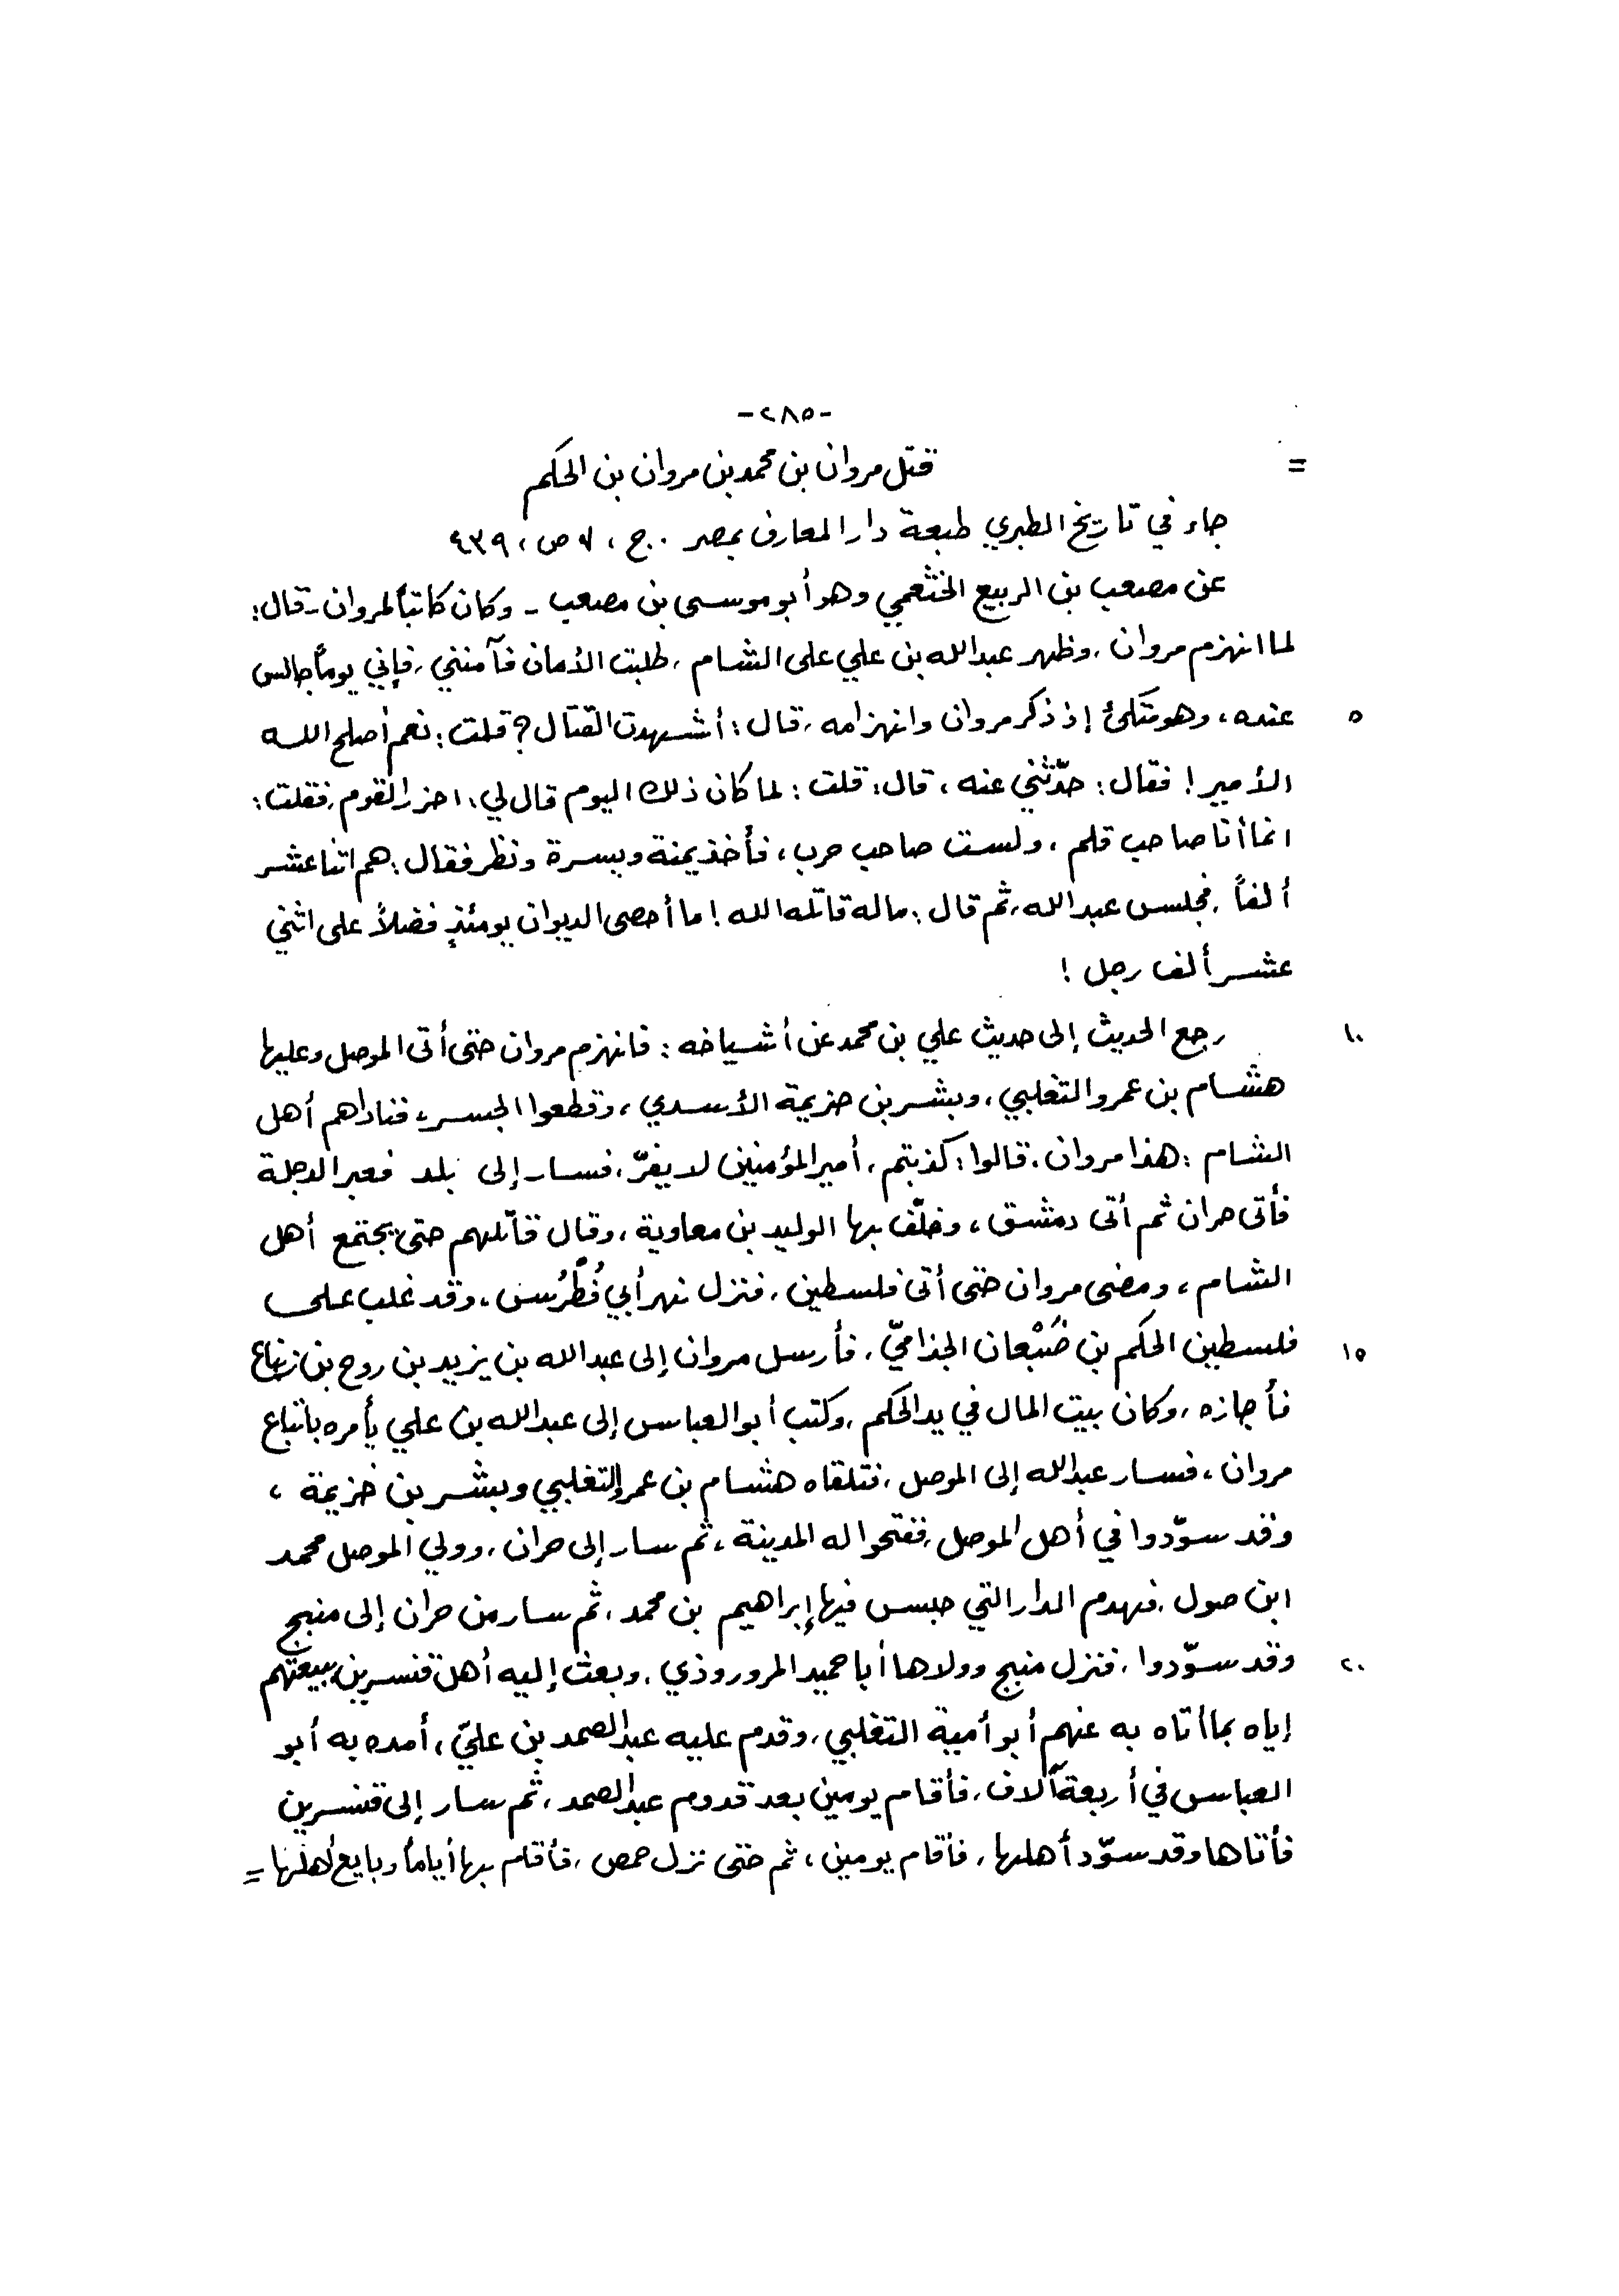 -٢٨٥-
= قتل مروان بن محمد بن مروان بن الحكم
جاء في تاريخ الطبري طبعة دار المعارف بمصر . ج ، ٧ ص ، ٤٣٩
عن مصعب بن الربيع الخثعمي وهو أبو موسى بن مصعب - وكان كاتباً لمروان - قال :
لما انهزم مروان ، وظهر عبدالله بن علي على الشام ، طلبت الأمان فآمنني ، فإني يوماً جالس
٥ عنده ، وهو متكئ إذ ذكر مروان وانهزامه ، قال : أشهدت القتال ؟ قلت : نعم أصلح الله
الأمير ! فقال : حدّثني عنه ، قال : قلت : لما كان ذلك اليوم قال لي : احزر القوم ، فقلت :
انما أنا صاحب قلم ، ولست صاحب حرب ، فأخذ يمنة ويسرة ونظر فقال : هم اثنا عشر
ألفاً . فجلس عبدالله ، ثم قال : ماله قاتله الله ! ما أحصى الديوان يومئذٍ فضلاً على اثني
عشر ألف رجل !
١٠ رجع الحديث إلى حديث علي بن محمد عن أشياخه : فانهزم مروان حتى أتى الموصل وعليها
هشام بن عمرو التغلبي ، وبشر بن خزيمة الأسدي ، وقطعوا الجسر ، فناداهم أهل
الشام : هذا مروان . قالوا : كذبتم ، أمير المؤمنين لا يفرّ ، فسار إلى بلد فعبر الدجلة
فأتى حران ثم أتى دمشق ، وخلّف بها الوليد بن معاوية ، وقال قاتلهم حتى يجتمع أهل
الشام ، ومضى مروان حتى أتى فلسطين ، فنزل نهر أبي فُطْرُس ، وقد غلب على
١٥ فلسطين الحكم بن ضَبْعان الجذاميّ ، فأرسل مروان إلى عبدالله بن يزيد بن روح بن زنباع
فأجازه ، وكان بيت المال في يد الحكم ، وكتب أبو العباس إلى عبدالله بن علي يأمره باتباع
مروان ، فسار عبدالله إلى الموصل ، فتلقاه هشام بن عمرو التغلبي وبشر بن خزيمة ،
وقد سوّدوا في أهل الموصل ، ففتحوا له المدينة ، ثم سار إلى حران ، وولي الموصل محمد
ابن صول ، فهدم الدار التي حبس فيها إبراهيم بن محمد ، ثم سار من حران إلى منبج
٢٠ وقد سوّدوا ، فنزل منبج وولاها أبا حميد المروروذي ، وبعث إليه أهل قنسرين ببيعتهم
إياه بما أتاه به عنهم أبو أمية التغلبي ، وقدم عليه عبدالصمد بن عليّ ، أمده به أبو
العباس في أربعة آلاف ، فأقام يومين بعد قدوم عبدالصمد ، ثم سار إلى قنسرين
فأتاها وقد سوّد أهلها ، فأقام يومين ، ثم حتى نزل حمص ، فأقام بها أياماً وبايع أهلها =